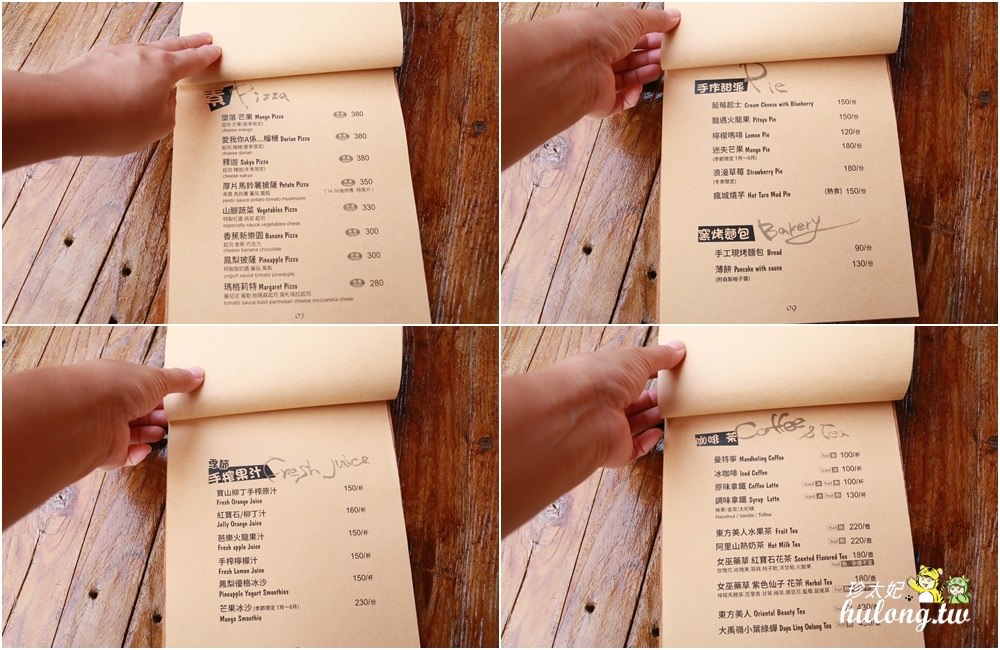 素 Pizza
墮落 芒果 Mango Pizza 380
起司 芒果(夏季限定)
cheese mango
愛我你A係...榴槤 Durian Pizza 380
起司 榴槤(夏季限定)
cheese durian
釋迦 Sakya Pizza 380
起司 釋迦(冬季限定)
cheese sakya
厚片馬鈴薯披薩 Potato Pizza 350
青醬 馬鈴薯 蕃茄 蘑菇
pesto sauce potato tomato mushroom
山腳蔬菜 Vegetables Pizza 330
特製紅醬 蔬菜 起司
especially sauce vegetables chese
香蕉新樂園 Banana Pizza 300
起司 香蕉 巧克力
cheese banana chocolate
鳳梨披薩 Pineapple Pizza 300
特製酸奶醬 蕃茄 鳳梨
yogurt sauce tomato pineapple
瑪格莉特 Margaret Pizza 280
蕃茄泥 羅勒 帕瑪森起司 莫札瑞拉起司
tomato sauce basil parmesan cheese mozzarella chese
07
手作甜派 Pie
藍莓起士 Cream Cheese with Blueberry 150/份
豔遇火龍果 Pitaya Pie 150/份
檸檬嗎啡 Lemon Pie 120/份
迷失芒果 Mango Pie 180/份
(季節限定 7月~8月)
浪漫草莓 Strawberry Pie 180/份
(冬季限定)
瘋城燒芋 Hot Taro Mud Pie (熱食) 150/份
窯烤麵包 Bakery
手工現烤麵包 Bread 90/份
薄餅 Pancake with sauce 130/份
(附自製柚子醬)
09
季節
手搾果汁 Fresh Juice
寶山柳丁手榨原汁 150/杯
Fresh Orange Juice
紅寶石/柳丁汁 160/杯
Jelly Orange Juice
芭樂火龍果汁 150/杯
Fresh apple Juice
手榨檸檬汁 150/杯
Fresh Lemon Juice
鳳梨優格冰沙 150/杯
Pineapple Yogurt Smoothies
芒果冰沙 (季節限定 7月~8月) 230/份
Mango Smoothie
咖啡 茶 Coffee & Tea
曼特寧 Mandheling Coffee hot 熱 100/杯
冰咖啡 Iced Coffee iced 冰 100/杯
原味拿鐵 Coffen Latte iced 冰 hot 熱 100/杯
調味拿鐵 Syrup Latte iced 冰 hot 熱 130/杯
榛果/香草/太妃糖
Hazelnut / Vanilla / Toffee
東方美人水果茶 Fruit Tea hot 熱 220/壺
阿里山熱奶茶 Hot Milk Tea hot 熱 220/壺
女巫藥草 紅寶石花茶 Scented Flavored Tea 180/壺
女巫藥草 紫色仙子 花茶 Herbal Tea 180/壺
東方美人 Oriental Beauty Tea 430/
大禹嶺小葉綠蟬 Dayu Ling Oolong Tea
珍太妃
hulong.tw